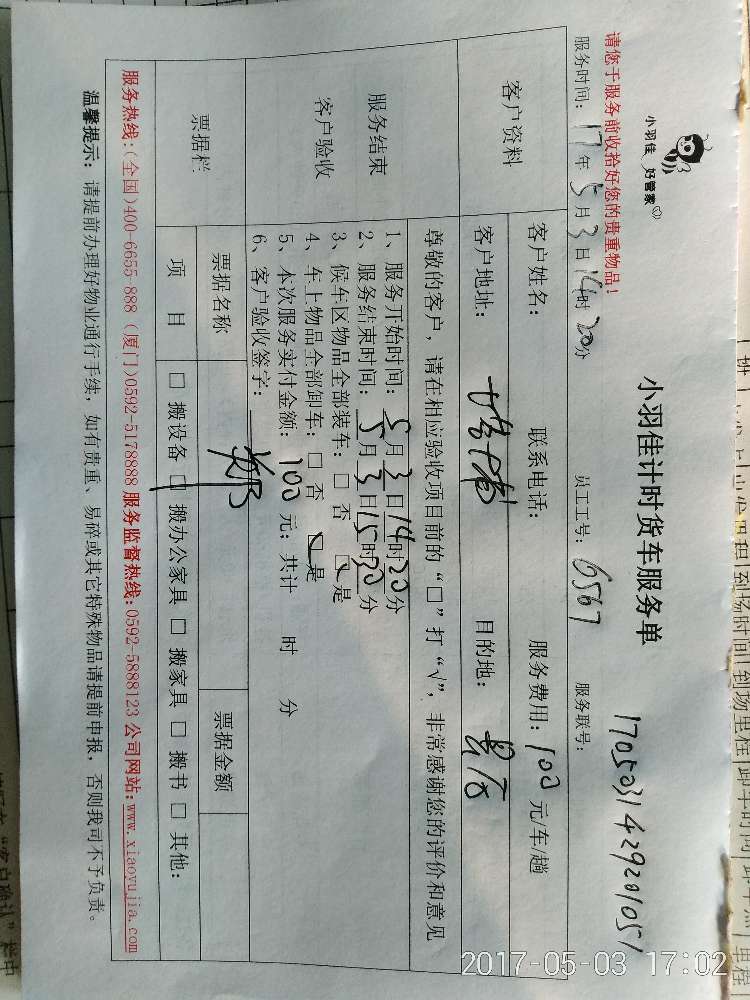 小羽佳 好管家
小羽佳计时货车服务单
1705031429201051
请您于服务前收拾好您的贵重物品!
服务时间: 17年5月3日14时20分 员工工号: 6567 服务联号:
客户资料
客户姓名: 联系电话: 服务费用: 100 元/车/趟
客户地址: 目的地:
尊敬的客户, 请在相应验收项目前的“□”打“√”, 非常感谢您的评价和意见
服务结束
客户验收
1、服务开始时间: 5月3日14时20分
2、服务结束时间: 5月3日15时30分
3、候车区物品全部装车: □ 否 ☑ 是
4、车上物品全部卸车: □ 否 ☑ 是
5、本次服务实付金额: 100 元; 共计 时 分
6、客户验收签字:
票据栏
票据名称 票据金额
项 目 □ 搬设备 □ 搬办公家具 □ 搬家具 □ 搬书 □ 其他:
服务热线:(全国)400-6655-888 (厦门)0592-5178888 服务监督热线:0592-5888123 公司网站:www.xiaoyujia.com
温馨提示: 请提前办理好物业通行手续, 如有贵重、易碎或其它特殊物品请提前申报, 否则我司不予负责。
2017-05-03 17:02